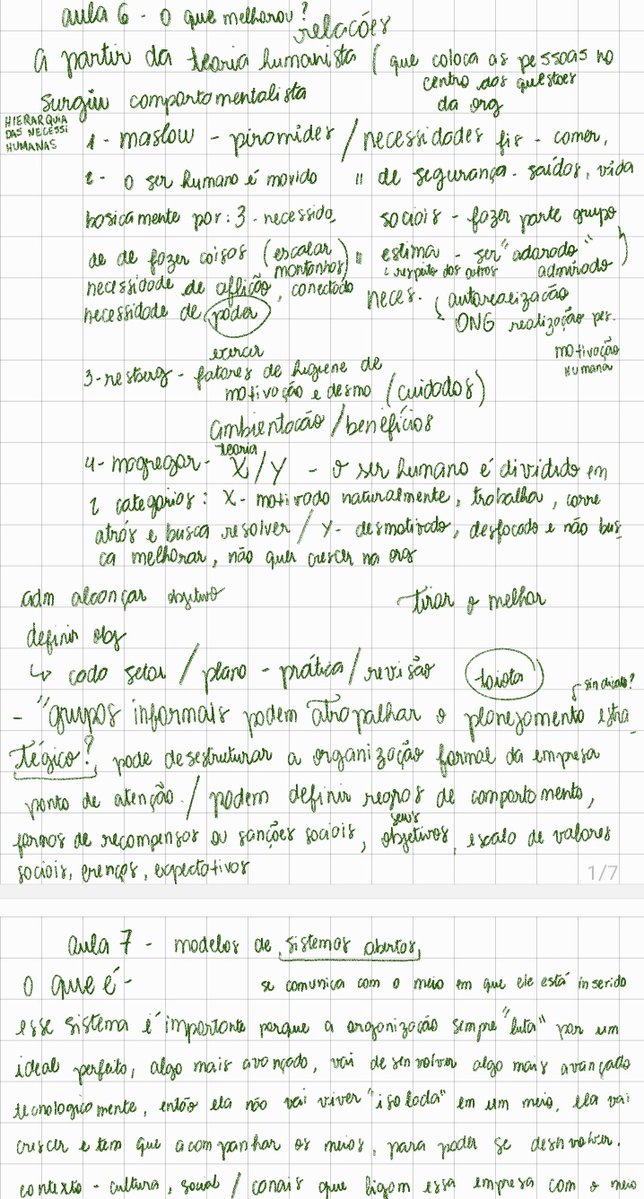 aula 6 - o que melhorou?
relações
a partir da teoria humanista ( que coloca as pessoas no
centro das questões
da org
surgiu comportamentalista
HIERARQUIA
DAS NECESSI
HUMANAS
1 - maslow - piramides / necessidades fis - comer,
2 - o ser humano é movido " de segurança - saídas, vida
basicamente por: 3 - necessida, sociais - fazer parte grupo
de de fazer coisas (escalar montanhas) " estima - ser "adorado"
( respeito dos outros admirado )
necessidade de aflição, conectado neces. ( autorealização
necessidade de poder ONG realização pes.
exercer
motivação
humana
3 - nesberg - fatores de higiene de
motivação e desmo (cuidados)
ambientação / benefícios
4 - mcgregor - teoria X/Y - o ser humano é dividido em
2 categorias: X - motivado naturalmente, trabalha, corre
atrás e busca resolver / Y - desmotivado, desfocado e não bus
ca melhorar, não quer crescer na org
adm alcançar objetivo tirar o melhor
definir obj
↳ cada setor / plano - prática / revisão toiota
sindicato?
- "grupos informais podem atrapalhar o planejamento estra
tégico? pode desestruturar a organização formal da empresa
ponto de atenção. / podem definir regras de comportamento,
formas de recompensas ou sanções sociais, seus objetivos, escala de valores
sociais, crenças, expectativas
1/7
aula 7 - modelos de sistemas abertos,
o que é - se comunica com o meio em que ele está inserido
esse sistema é importante porque a organização sempre "luta" por um
ideal perfeito, algo mais avançado, vai desenvolver algo mais avançado
tecnologicamente, então ela não vai viver "isolada" em um meio, ela vai
crescer e tem que acompanhar os meios, para poder se desenvolver.
contexto - cultura, social / canais que ligam essa empresa com o meio